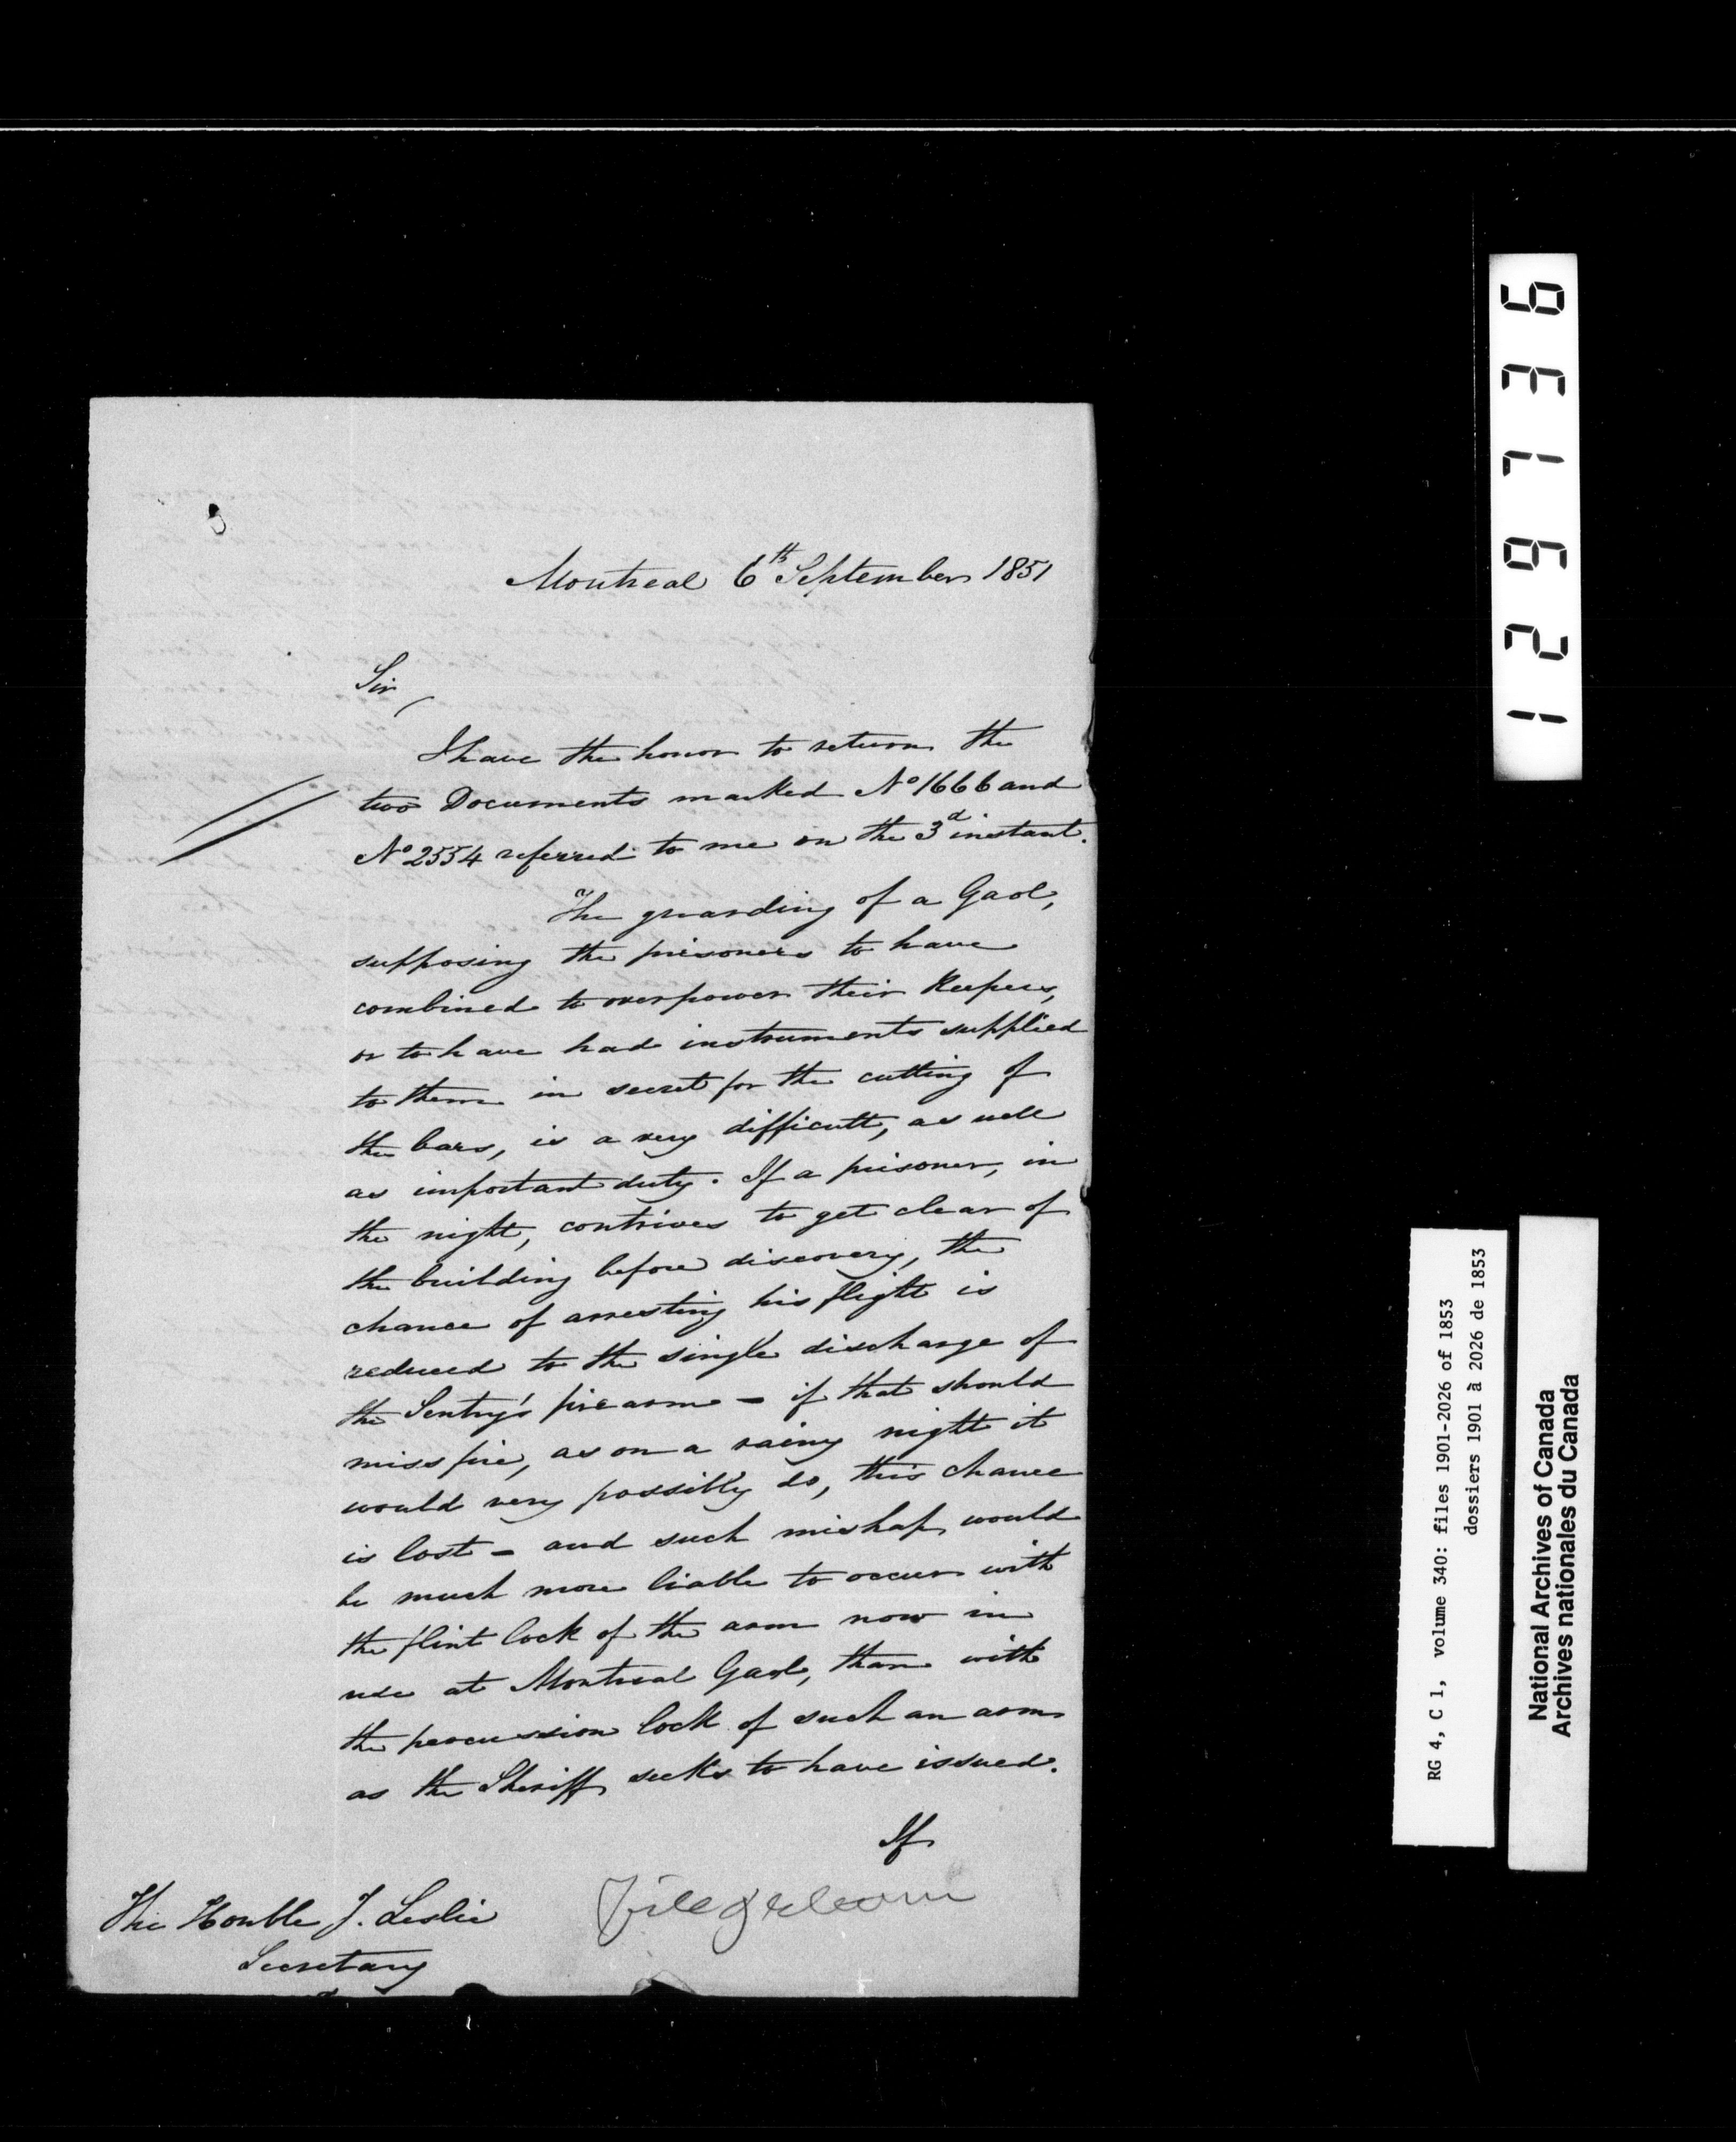 Montreal 6th September 1851
Sir,
I have the honor to return the
two Documents marked No 1666 and
No 2554 referred to me on the 3d instant.
The guarding of a Gaol,
supposing the prisoners to have
combined to overpower their Keepers,
or to have had instruments supplied
to them in secret for the cutting of
the bars, is a very difficult, as well
as important duty. If a prisoner, in
the night, contrives to get clear of
the building before discovery, the
chance of arresting his flight is
reduced to the single discharge of
the Sentry's fire arm - if that should
miss fire, as on a rainy night it
would very possibly do, this chance
is lost - and such mishap would
be much more liable to occur with
the flint lock of the arm now in
use at Montreal Gaol, than with
the percussion lock of such an arm
as the Sheriff seeks to have issued.
If
The Honble J. Leslie
Secretary
File
129736
RG 4, C 1, volume 340: files 1901-2026 of 1853
dossiers 1901 à 2026 de 1853
National Archives of Canada
Archives nationales du Canada